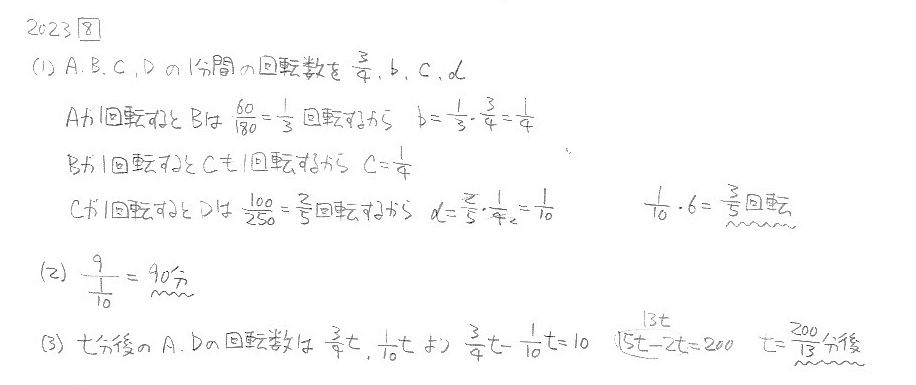 2023 8
(1) A.B.C.Dの1分間の回転数を 3/4, b, c, d
Aが1回転するとBは 60/180 = 1/3 回転するから b = 1/3・3/4 = 1/4
Bが1回転するとCも1回転するから C = 1/4
Cが1回転するとDは 100/250 = 2/5 回転するから d = 2/5・1/4 2 = 1/10 1/10・6 = 3/5 回転
(2) 9/(1/10) = 90分
(3) t分後のA.Dの回転数は 3/4 t, 1/10 t より 3/4 t - 1/10 t = 10 15t - 2t = 200 13t t = 200/13 分後